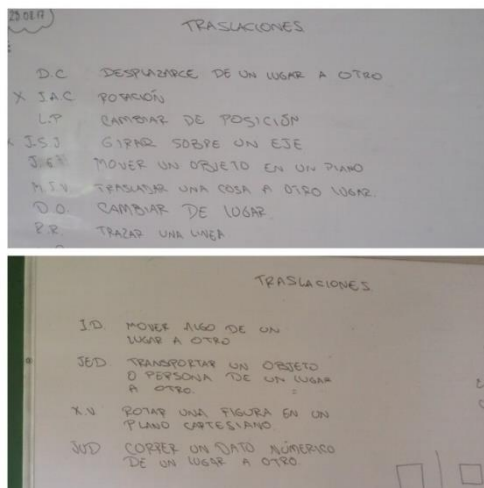 29.08.17
TRASLACIONES
D.C DESPLAZARCE DE UN LUGAR A OTRO
X J.A.C ROTACIÓN
L.P CAMBIAR DE POSICIÓN
X J.S.J GIRAR SOBRE UN EJE
MOVER UN OBJETO EN UN PLANO
M.S.V TRASLADAR UNA COSA A OTRO LUGAR.
D.O. CAMBIAR DE LUGAR
R.R. TRAZAR UNA LINEA.
TRASLACIONES
I.D. MOVER ALGO DE UN
LUGAR A OTRO
JED. TRANSPORTAR UN OBJETO
O PERSONA DE UN LUGAR
A OTRO.
X.V ROTAR UNA FIGURA EN UN
PLANO CARTESIANO.
JUD CORRER UN DATO NÚMERICO
DE UN LUGAR A OTRO.